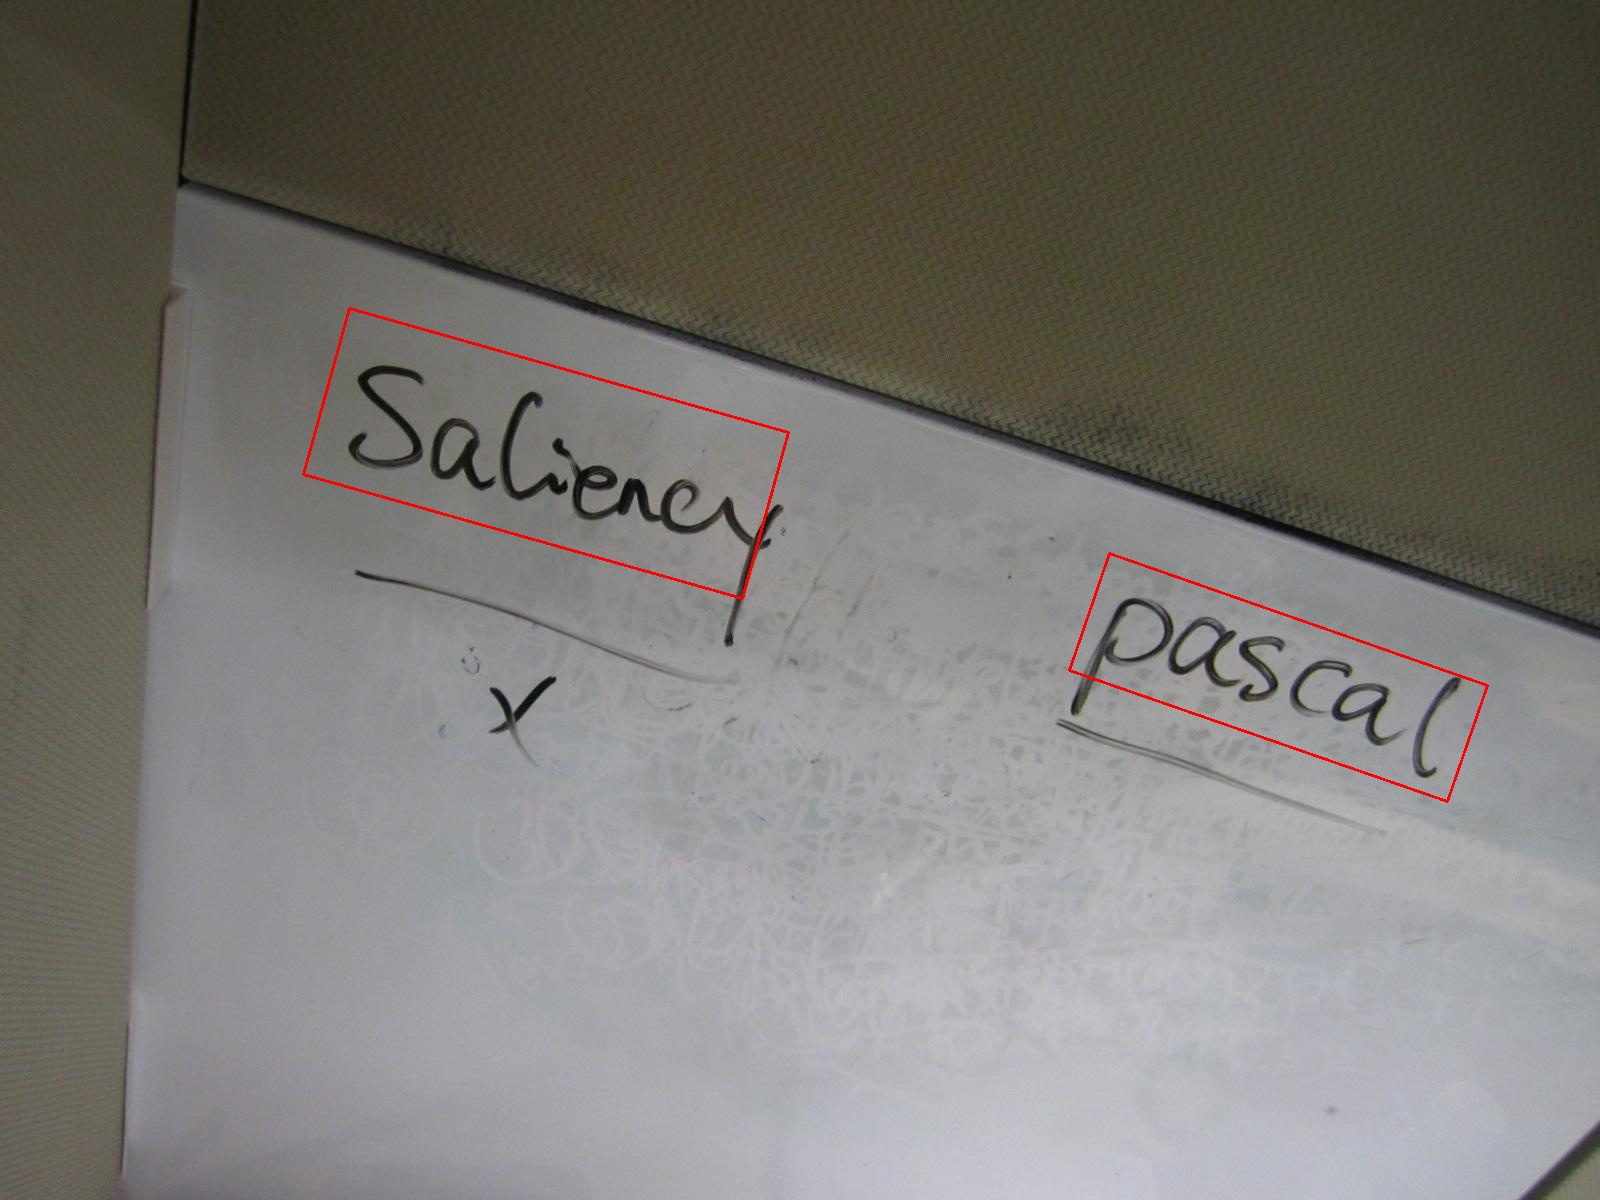 Saliency
pascal
x